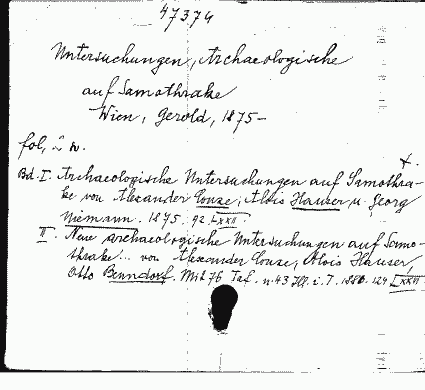 47374
Untersuchungen, Archaeologische
auf Samothrake
Wien, Gerold, 1875-
fol, 2 w.
Bd. I. Archaeologische Untersuchungen auf Samothra-
ke von Alexander Conze, Alois Hauser u. Georg
Niemann. 1875. 92. LXXII.
II. Neue archaeologische Untersuchungen auf Samo-
thrake... von Alexander Conze, Alois Hauser,
Otto Benndorf. Mit 76 Taf. u. 43 Ill. i. T. 1880. 124